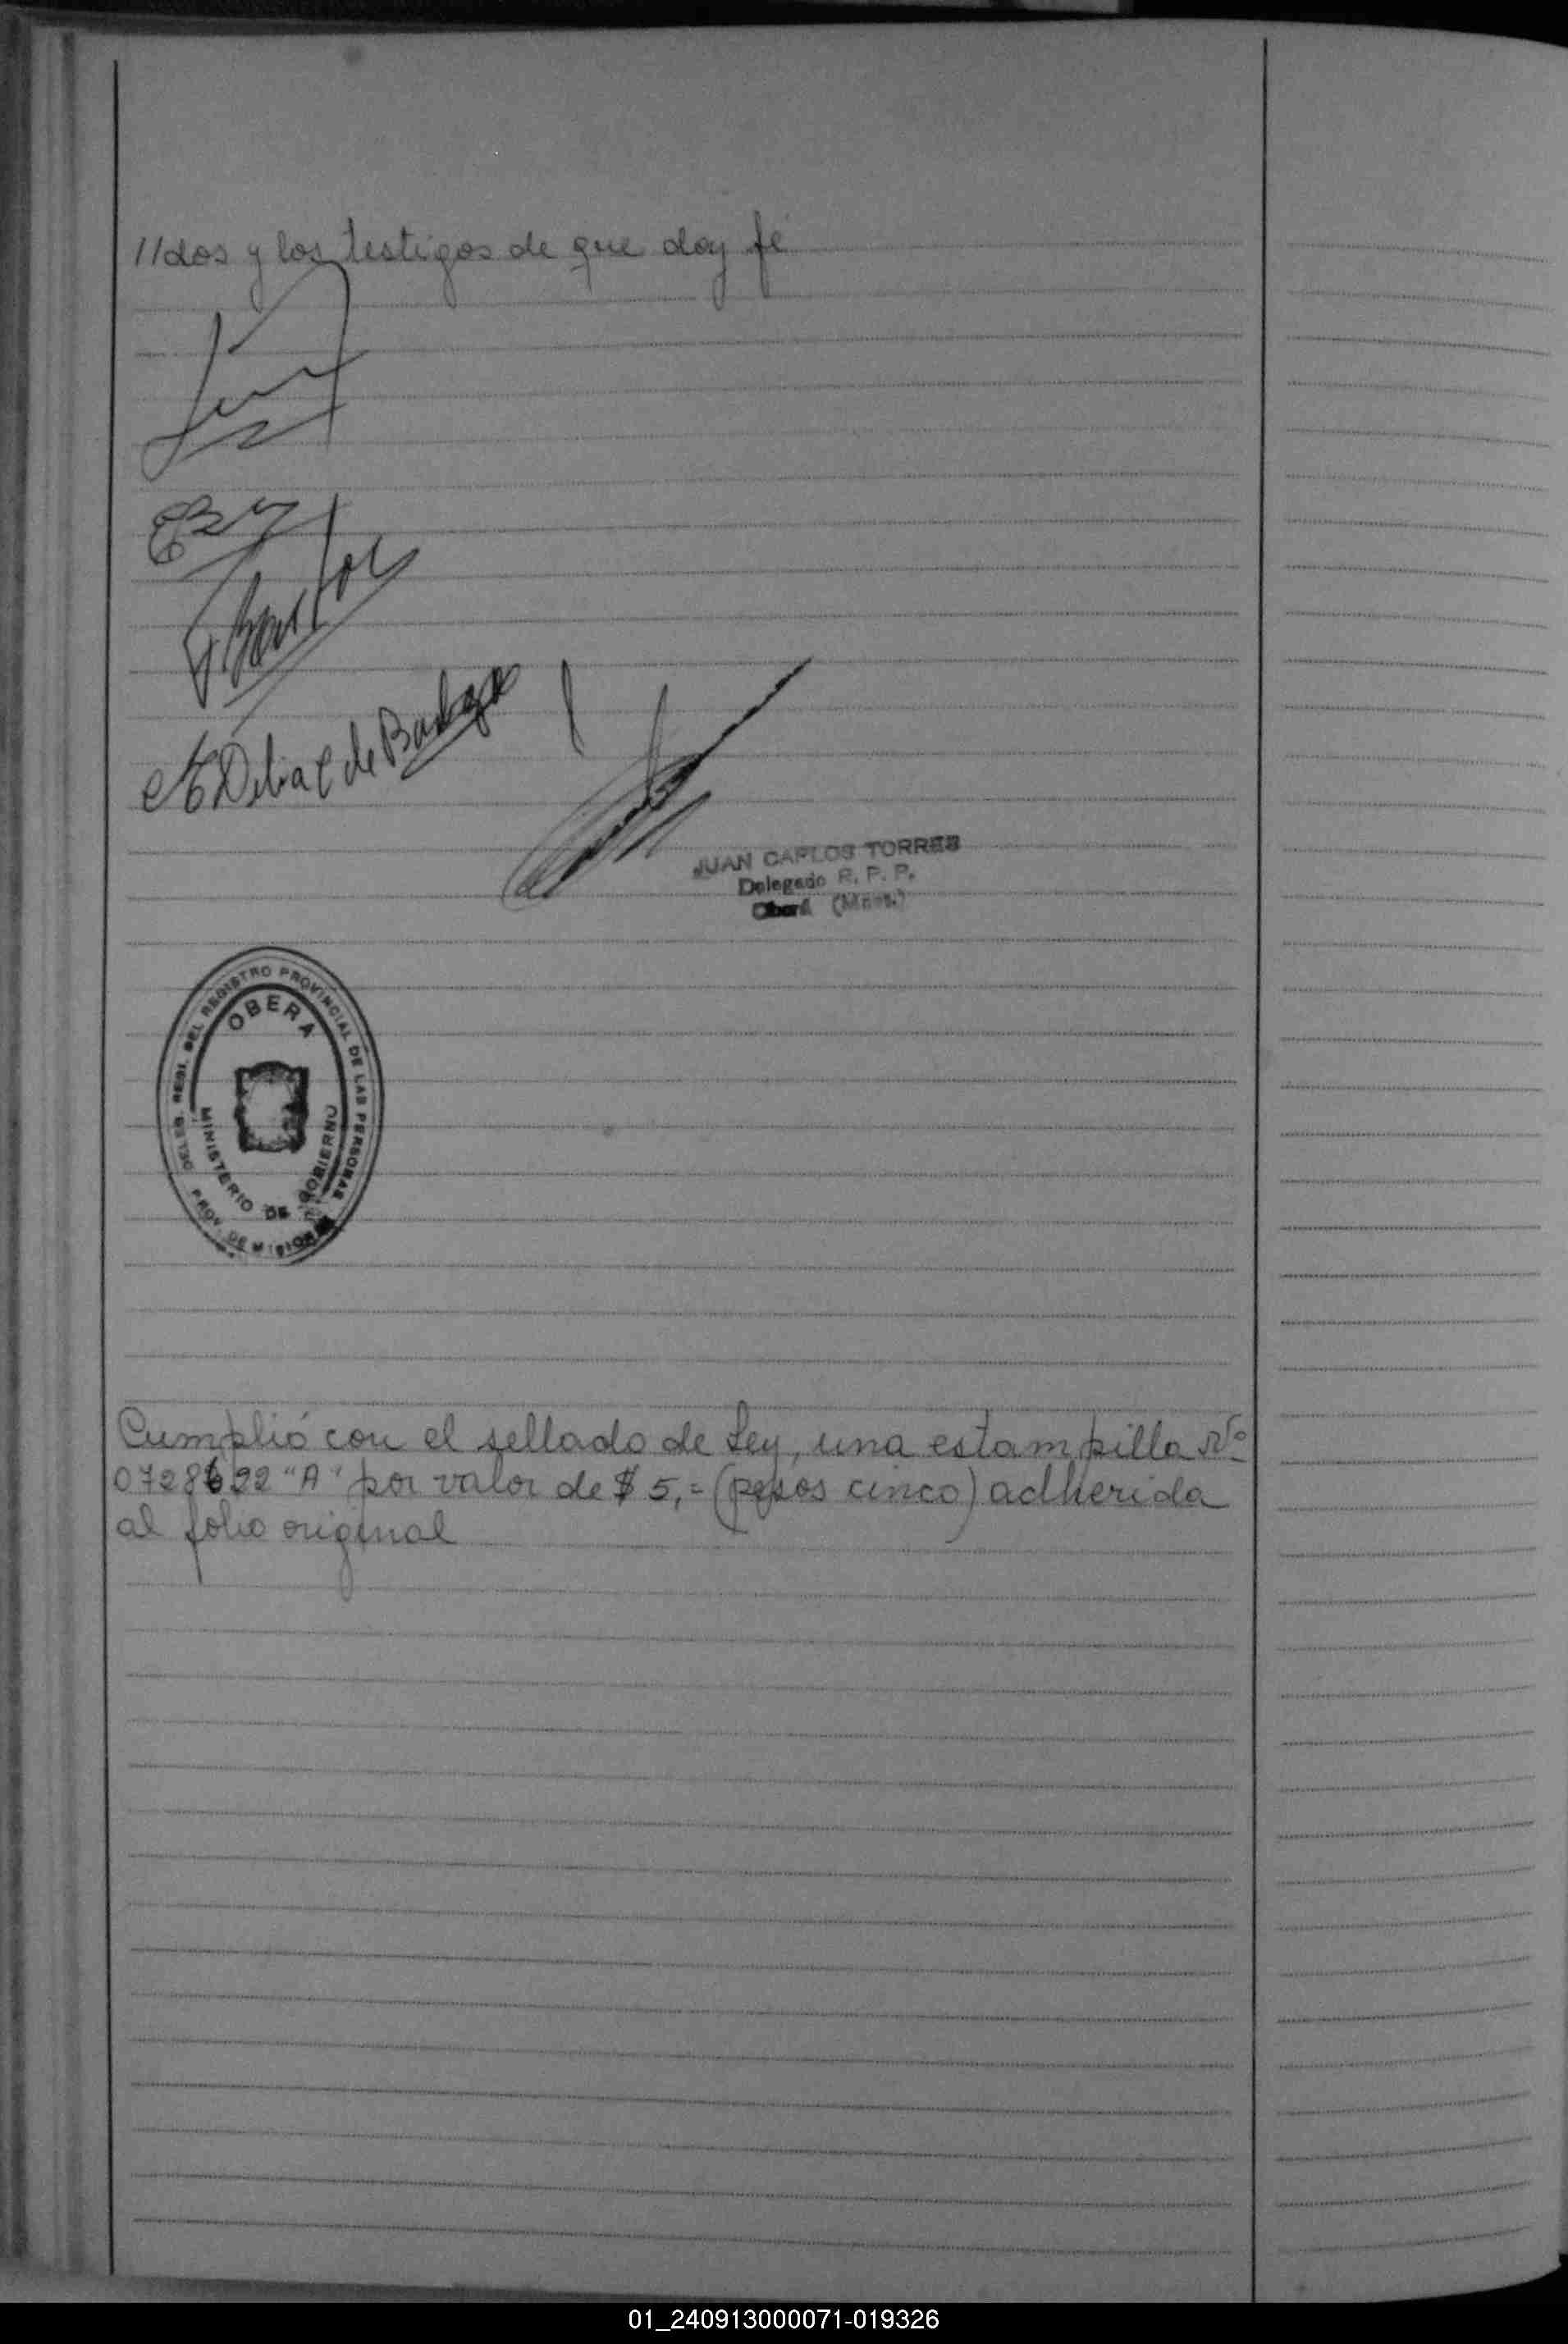 //dos y los testigos de que doy fé
Delia C de
JUAN CARLOS TORRES
Delegado R. P. P.
Oberá (Mnes.)
DELEG. REGI. DEL REGISTRO PROVINCIAL DE LAS PERSONAS
OBERA
MINISTERIO DE GOBIERNO
PROV. DE MISIONES
Cumplió con el sellado de Ley, una estampilla Nº
0728622 "A" por valor de $ 5,= (pesos cinco) adherida
al folio original
01_240913000071-019326